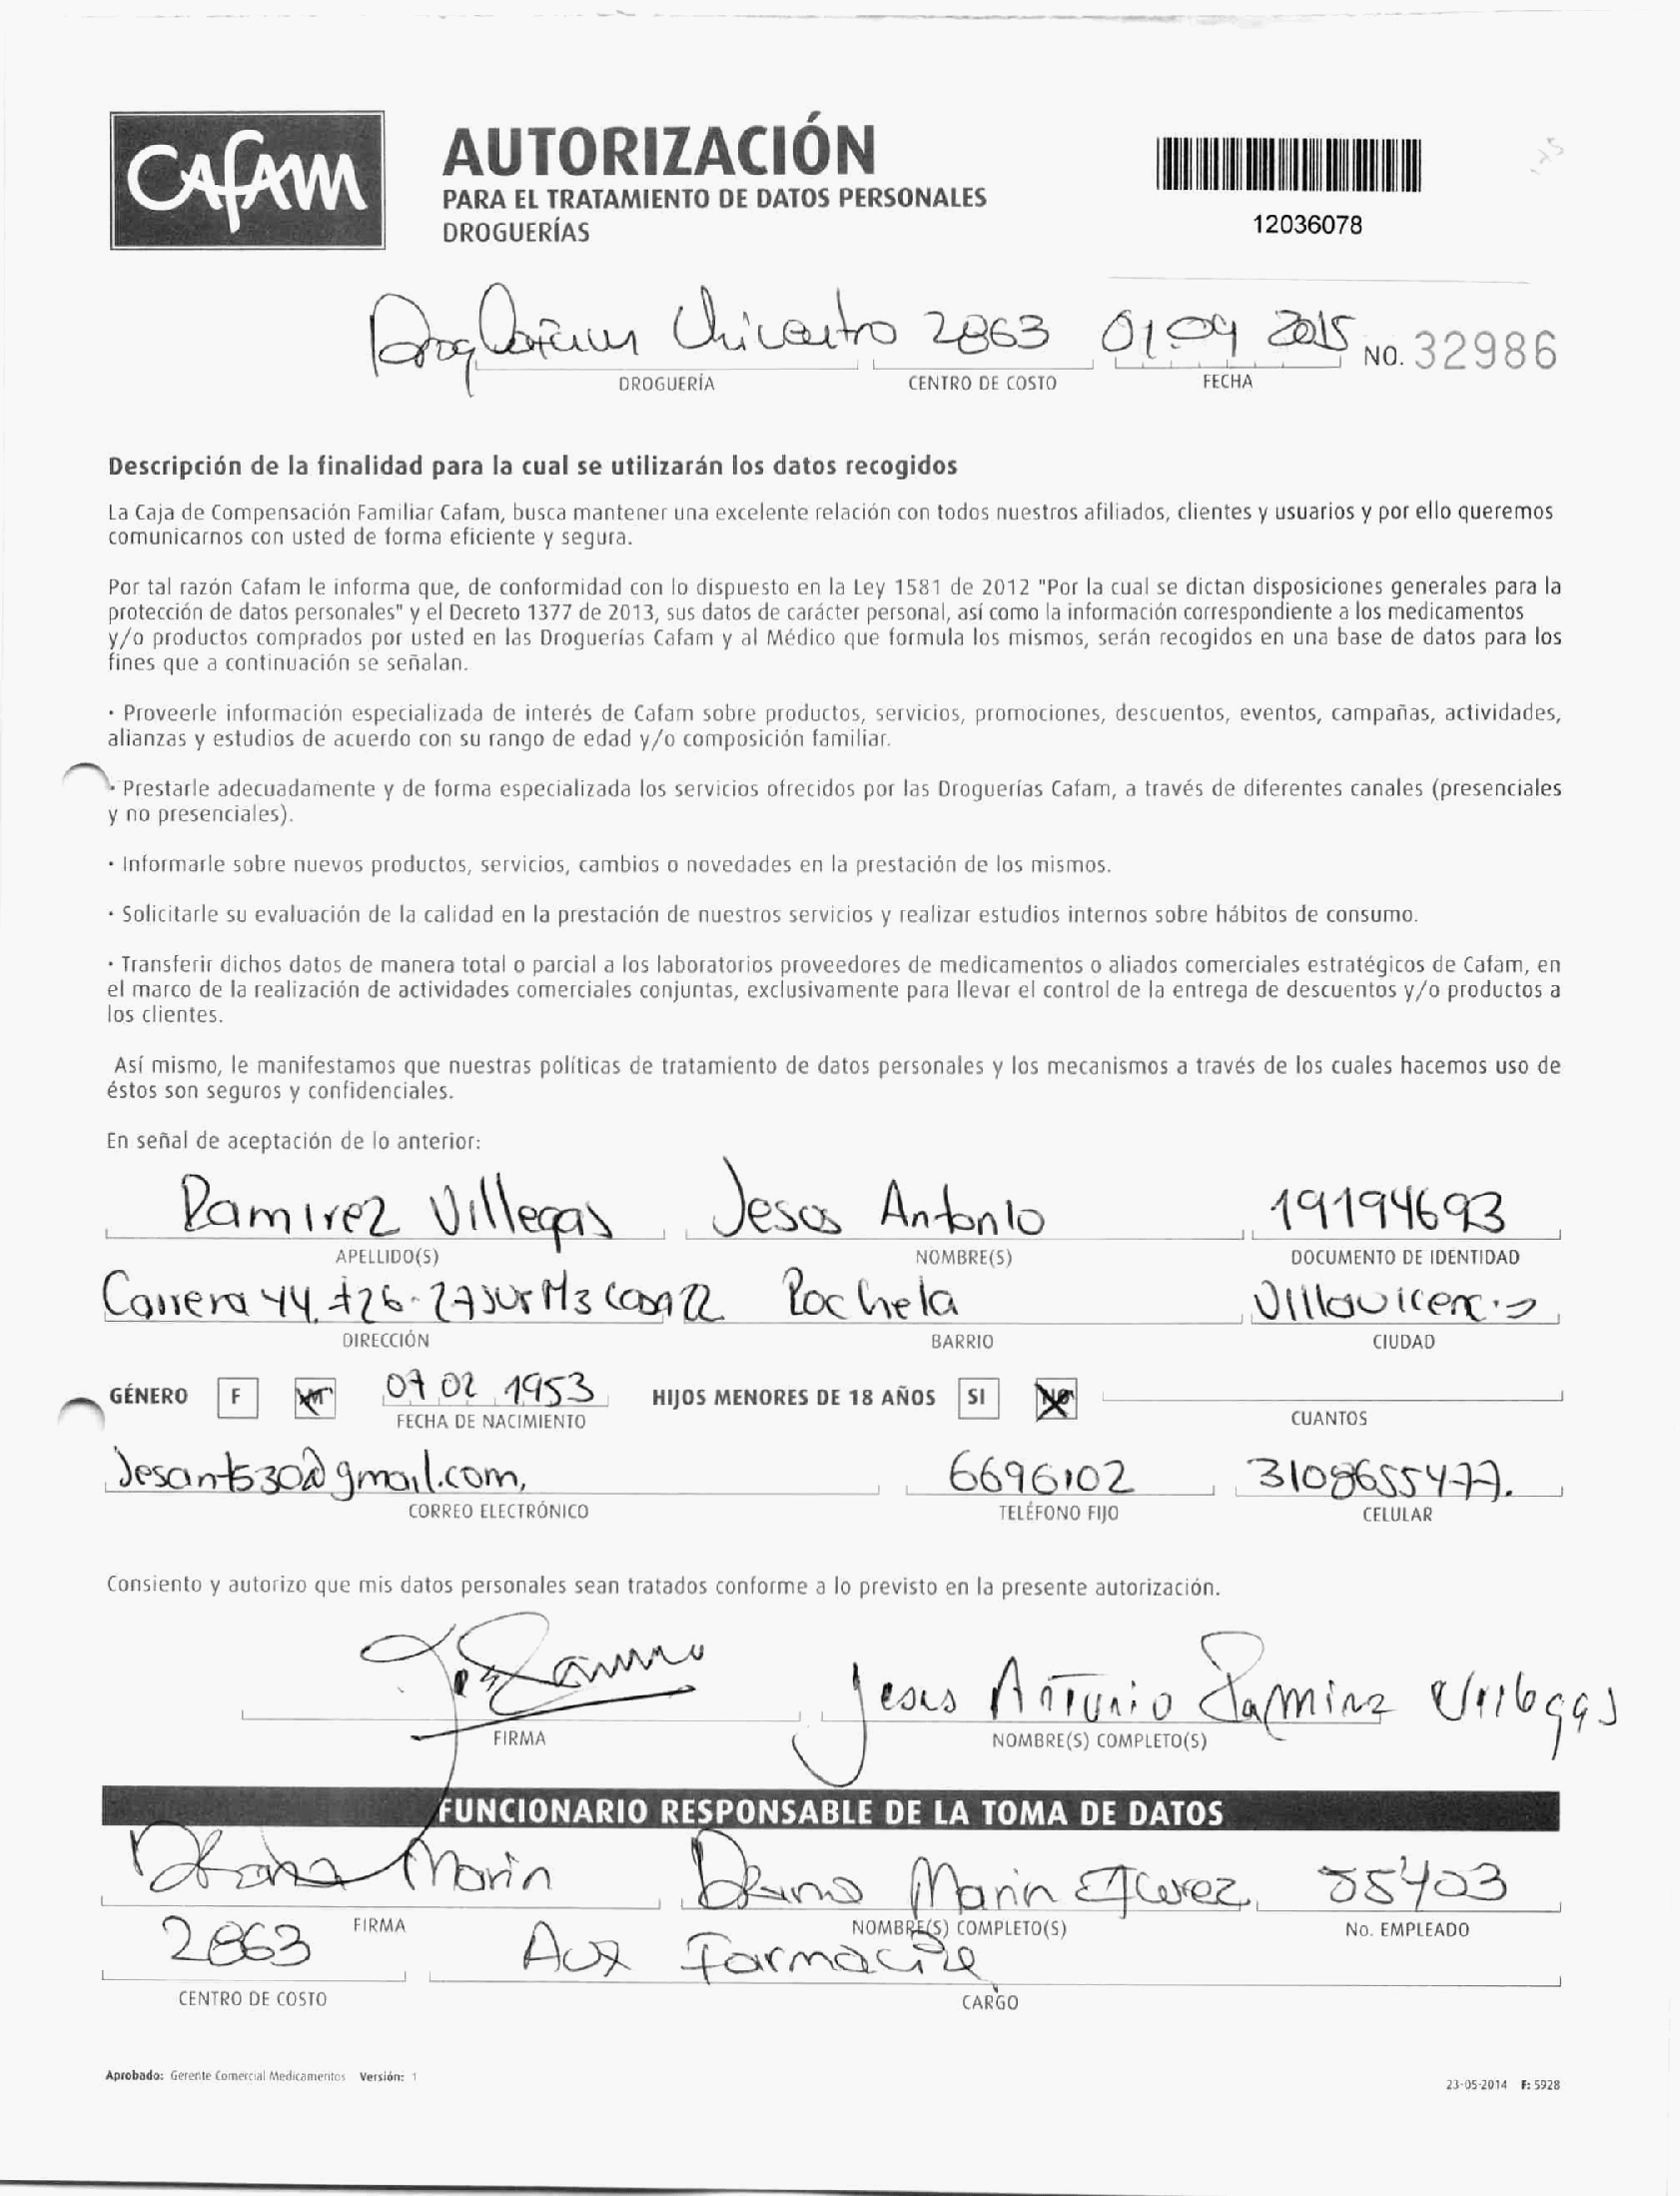 CAFAM
AUTORIZACIÓN
PARA EL TRATAMIENTO DE DATOS PERSONALES
DROGUERÍAS
12036078
Unicentro 2863 01 09 2015 NO. 32986
DROGUERÍA CENTRO DE COSTO FECHA
Descripción de la finalidad para la cual se utilizarán los datos recogidos
La Caja de Compensación Familiar Cafam, busca mantener una excelente relación con todos nuestros afiliados, clientes y usuarios y por ello queremos
comunicarnos con usted de forma eficiente y segura.
Por tal razón Cafam le informa que, de conformidad con lo dispuesto en la Ley 1581 de 2012 "Por la cual se dictan disposiciones generales para la
protección de datos personales" y el Decreto 1377 de 2013, sus datos de carácter personal, así como la información correspondiente a los medicamentos
y/o productos comprados por usted en las Droguerías Cafam y al Médico que formula los mismos, serán recogidos en una base de datos para los
fines que a continuación se señalan.
· Proveerle información especializada de interés de Cafam sobre productos, servicios, promociones, descuentos, eventos, campañas, actividades,
alianzas y estudios de acuerdo con su rango de edad y/o composición familiar.
· Prestarle adecuadamente y de forma especializada los servicios ofrecidos por las Droguerías Cafam, a través de diferentes canales (presenciales
y no presenciales).
· Informarle sobre nuevos productos, servicios, cambios o novedades en la prestación de los mismos.
· Solicitarle su evaluación de la calidad en la prestación de nuestros servicios y realizar estudios internos sobre hábitos de consumo.
· Transferir dichos datos de manera total o parcial a los laboratorios proveedores de medicamentos o aliados comerciales estratégicos de Cafam, en
el marco de la realización de actividades comerciales conjuntas, exclusivamente para llevar el control de la entrega de descuentos y/o productos a
los clientes.
Así mismo, le manifestamos que nuestras políticas de tratamiento de datos personales y los mecanismos a través de los cuales hacemos uso de
éstos son seguros y confidenciales.
En señal de aceptación de lo anterior:
Ramirez Villegas Jesus Antonio 19194693
APELLIDO(S) NOMBRE(S) DOCUMENTO DE IDENTIDAD
Carrera 44 #26-27 sur M3 casa 22 Rochela Villavicencio
DIRECCIÓN BARRIO CIUDAD
GÉNERO F M 07 02 1953 HIJOS MENORES DE 18 AÑOS SI NO
FECHA DE NACIMIENTO CUANTOS
Jesant530@gmail.com, 6696102 3108655477.
CORREO ELECTRÓNICO TELÉFONO FIJO CELULAR
Consiento y autorizo que mis datos personales sean tratados conforme a lo previsto en la presente autorización.
Jesus Antonio Ramirez Villegas
FIRMA NOMBRE(S) COMPLETO(S)
FUNCIONARIO RESPONSABLE DE LA TOMA DE DATOS
Marin Marin 55403
FIRMA NOMBRE(S) COMPLETO(S) No. EMPLEADO
2863 Aux
CENTRO DE COSTO CARGO
Aprobado: Gerente Comercial Medicamentos Versión: 1
23-05-2014 F: 5928